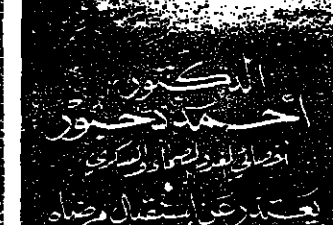 الدكتور
أحمد دحبور
أخصائي الغدد الصماء والسكري
يعتذر عن إستقبال مرضاه